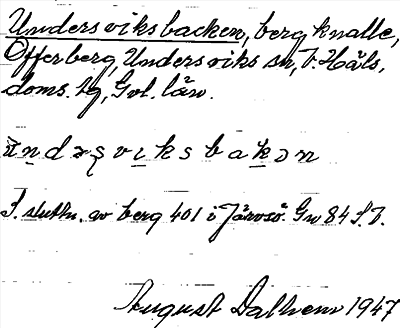 Undersviksbacken, bergknalle,
Offerberg, Undersviks sn, V. Häls,
doms. lg, Gvl. län.
ùndəʂviksbakən
S. slutn. av berg 401 i Järvsö. Gw 84 S.V.
August Dalhem 1947